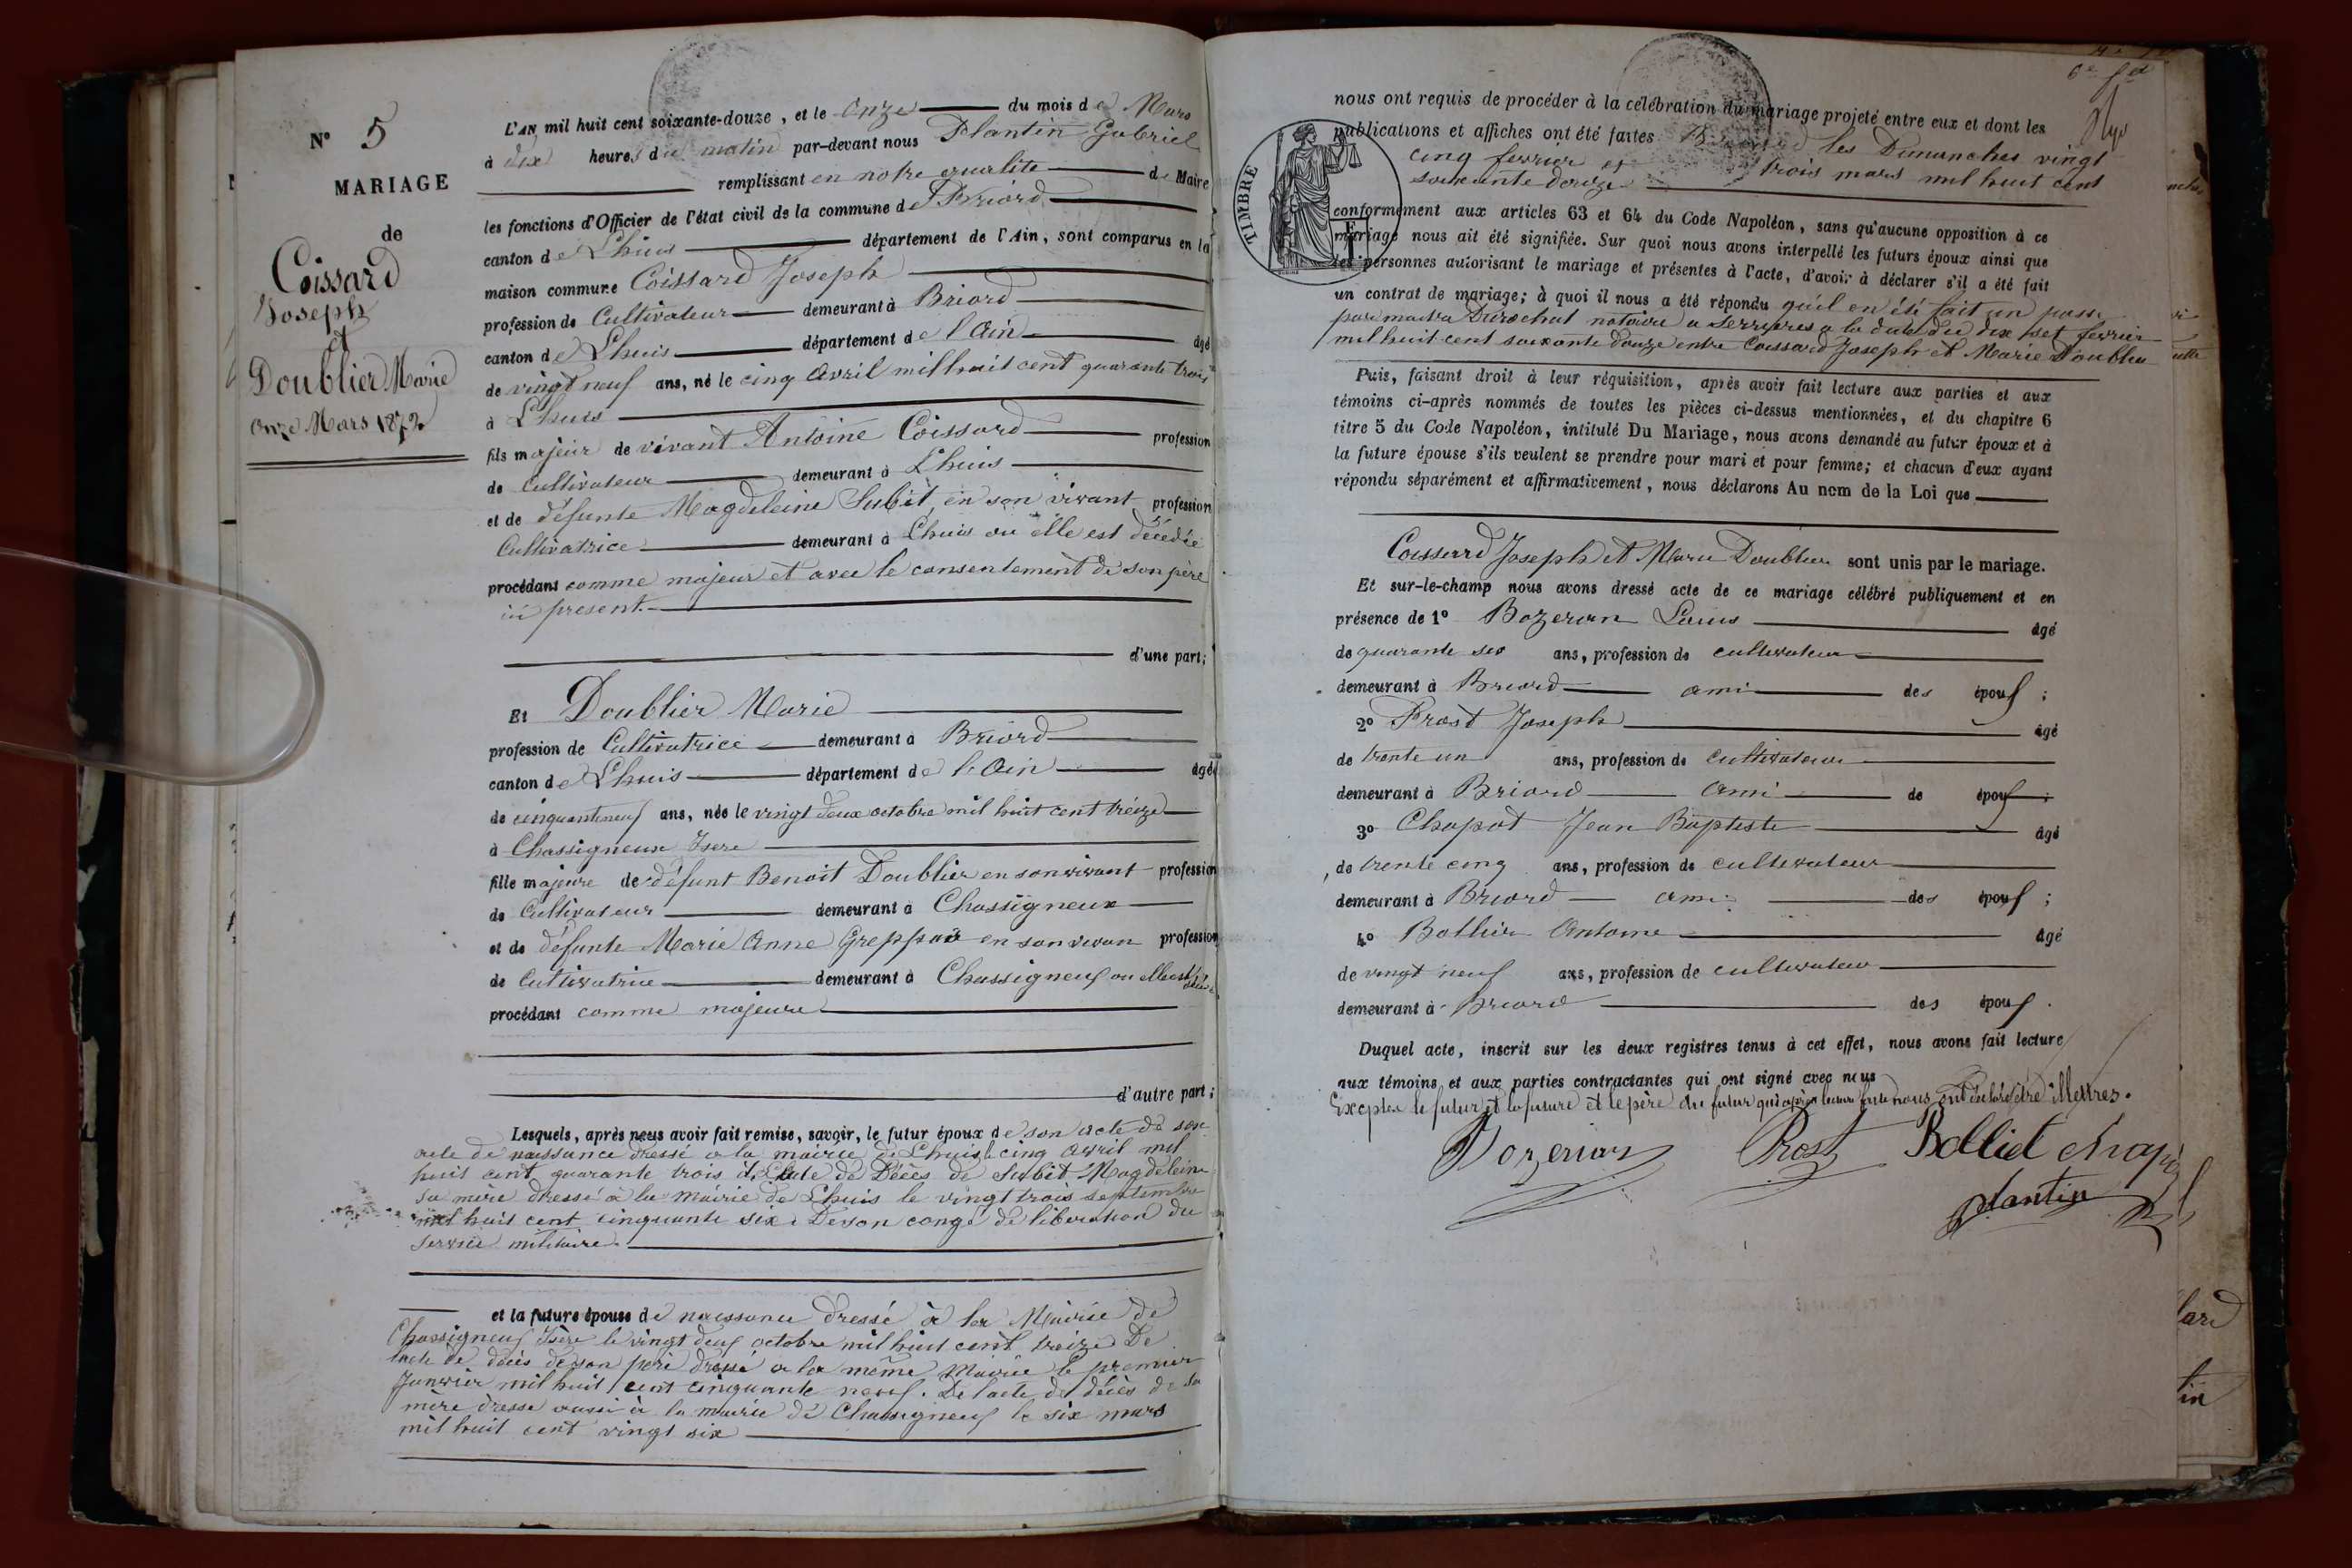 N° 5
MARIAGE
de
Coissard
Joseph
et
Doublier Marie
onze Mars 1872
L'AN mil huit cent soixante-douze, et le onze du mois de Mars
à dix heures du matin par-devant nous Plantin Gabriel
remplissant en notre qualite de Maire
les fonctions d'Officier de l'état civil de la commune de Briord
canton de Lhuis département de l'Ain, sont comparus en la
maison commune Coissard Joseph
profession de Cultivateur demeurant à Briord
canton de Lhuis département de l'Ain âgé
de vingt neuf ans, né le cinq Avril mil huit cent quarante trois
à Lhuis
fils majeur de vivant Antoine Coissard profession
de Cultivateur demeurant à Lhuis
et de défunte Magdeleine Subit, en son vivant profession
Cultivatrice demeurant à Lhuis ou elle est décédée
procédant comme majeur et avec le consentement de son père
ici present.
d'une part;
Et Doublier Marie
profession de Cultivatrice demeurant à Briord
canton de Lhuis département de l'Ain âgée
de cinquante neuf ans, née le vingt deux octobre mil huit cent treize
à Chassigneux Isere
fille majeure de défunt Benoit Doublier en son vivant profession
de Cultivateur demeurant à Chassigneux
et de défunte Marie Anne en son vivan profession
de Cultivatrice demeurant à Chassigneuf ou elle est
procédant comme majeure
d'autre part;
Lesquels, après nous avoir fait remise, savoir, le futur époux de son acte de son
acte de naissance dressé a la mairie de Lhuis le cinq Avril mil
huit cent quarante trois de L'acte de Décès de Subit Magdeleine
sa mère dressé à la mairie de Lhuis le vingt trois septembre
mil huit cent cinquante six. De son congé de liberation du
service militaire.
et la future épouse de naissance dressé à la Mairie de
Chassigneuf Isère le vingt deuf octobre mil huit cent treize De
lacte de décès de son père dressé a la même Mairie le premier
Janvier mil huit cent cinquante neuf. De lacte de décès de sa
mère dressé aussi à la mairie de Chassigneuf le six mars
mil huit cent vingt six
nous ont requis de procéder à la célébration du mariage projeté entre eux et dont les
publications et affiches ont été faites les Dimanches vingt
cinq fevrier et trois mars mil huit cent
soixante douze
TIMBRE
conformément aux articles 63 et 64 du Code Napoléon, sans qu'aucune opposition à ce
mariage nous ait été signifiée. Sur quoi nous avons interpellé les futurs époux ainsi que
les personnes autorisant le mariage et présentes à l'acte, d'avoir à déclarer s'il a été fait
un contrat de mariage; à quoi il nous a été répondu qu'il en été fait un passé
par maitre Durochat notaire a Serrieres a la date du dix set fevrier
mil huit cent soixante douze entre Coissard Joseph et Marie Doublier
Puis, faisant droit à leur réquisition, après avoir fait lecture aux parties et aux
témoins ci-après nommés de toutes les pièces ci-dessus mentionnées, et du chapitre 6
titre 5 du Code Napoléon, intitulé Du Mariage, nous avons demandé au futur époux et à
la future épouse s'ils veulent se prendre pour mari et pour femme; et chacun d'eux ayant
répondu séparément et affirmativement, nous déclarons Au nom de la Loi que
Coissard Joseph et Marie Doublier sont unis par le mariage.
Et sur-le-champ nous avons dressé acte de ce mariage célébré publiquement et en
présence de 1° Bozerian Louis âgé
de quarante six ans, profession de cultivateur
demeurant à Briord ami des épouf ;
2° Prost Joseph âgé
de trente un ans, profession de cultivateur
demeurant à Briord Ami de épouf ;
3° Chapot Jean Baptiste âgé
de trente cinq ans, profession de cultivateur
demeurant à Briord ami des épouf ;
4° Bolliet Antoine âgé
de vingt neuf ans, profession de cultivateur
demeurant à Briord des épouf .
Duquel acte, inscrit sur les deux registres tenus à cet effet, nous avons fait lecture
aux témoins et aux parties contractantes qui ont signé avec nous
Excepter le futur et la future et le père du futur qui après lecture faite nous ont déclaré être illettres.
Bozerian Prost Bolliet chapot
plantin